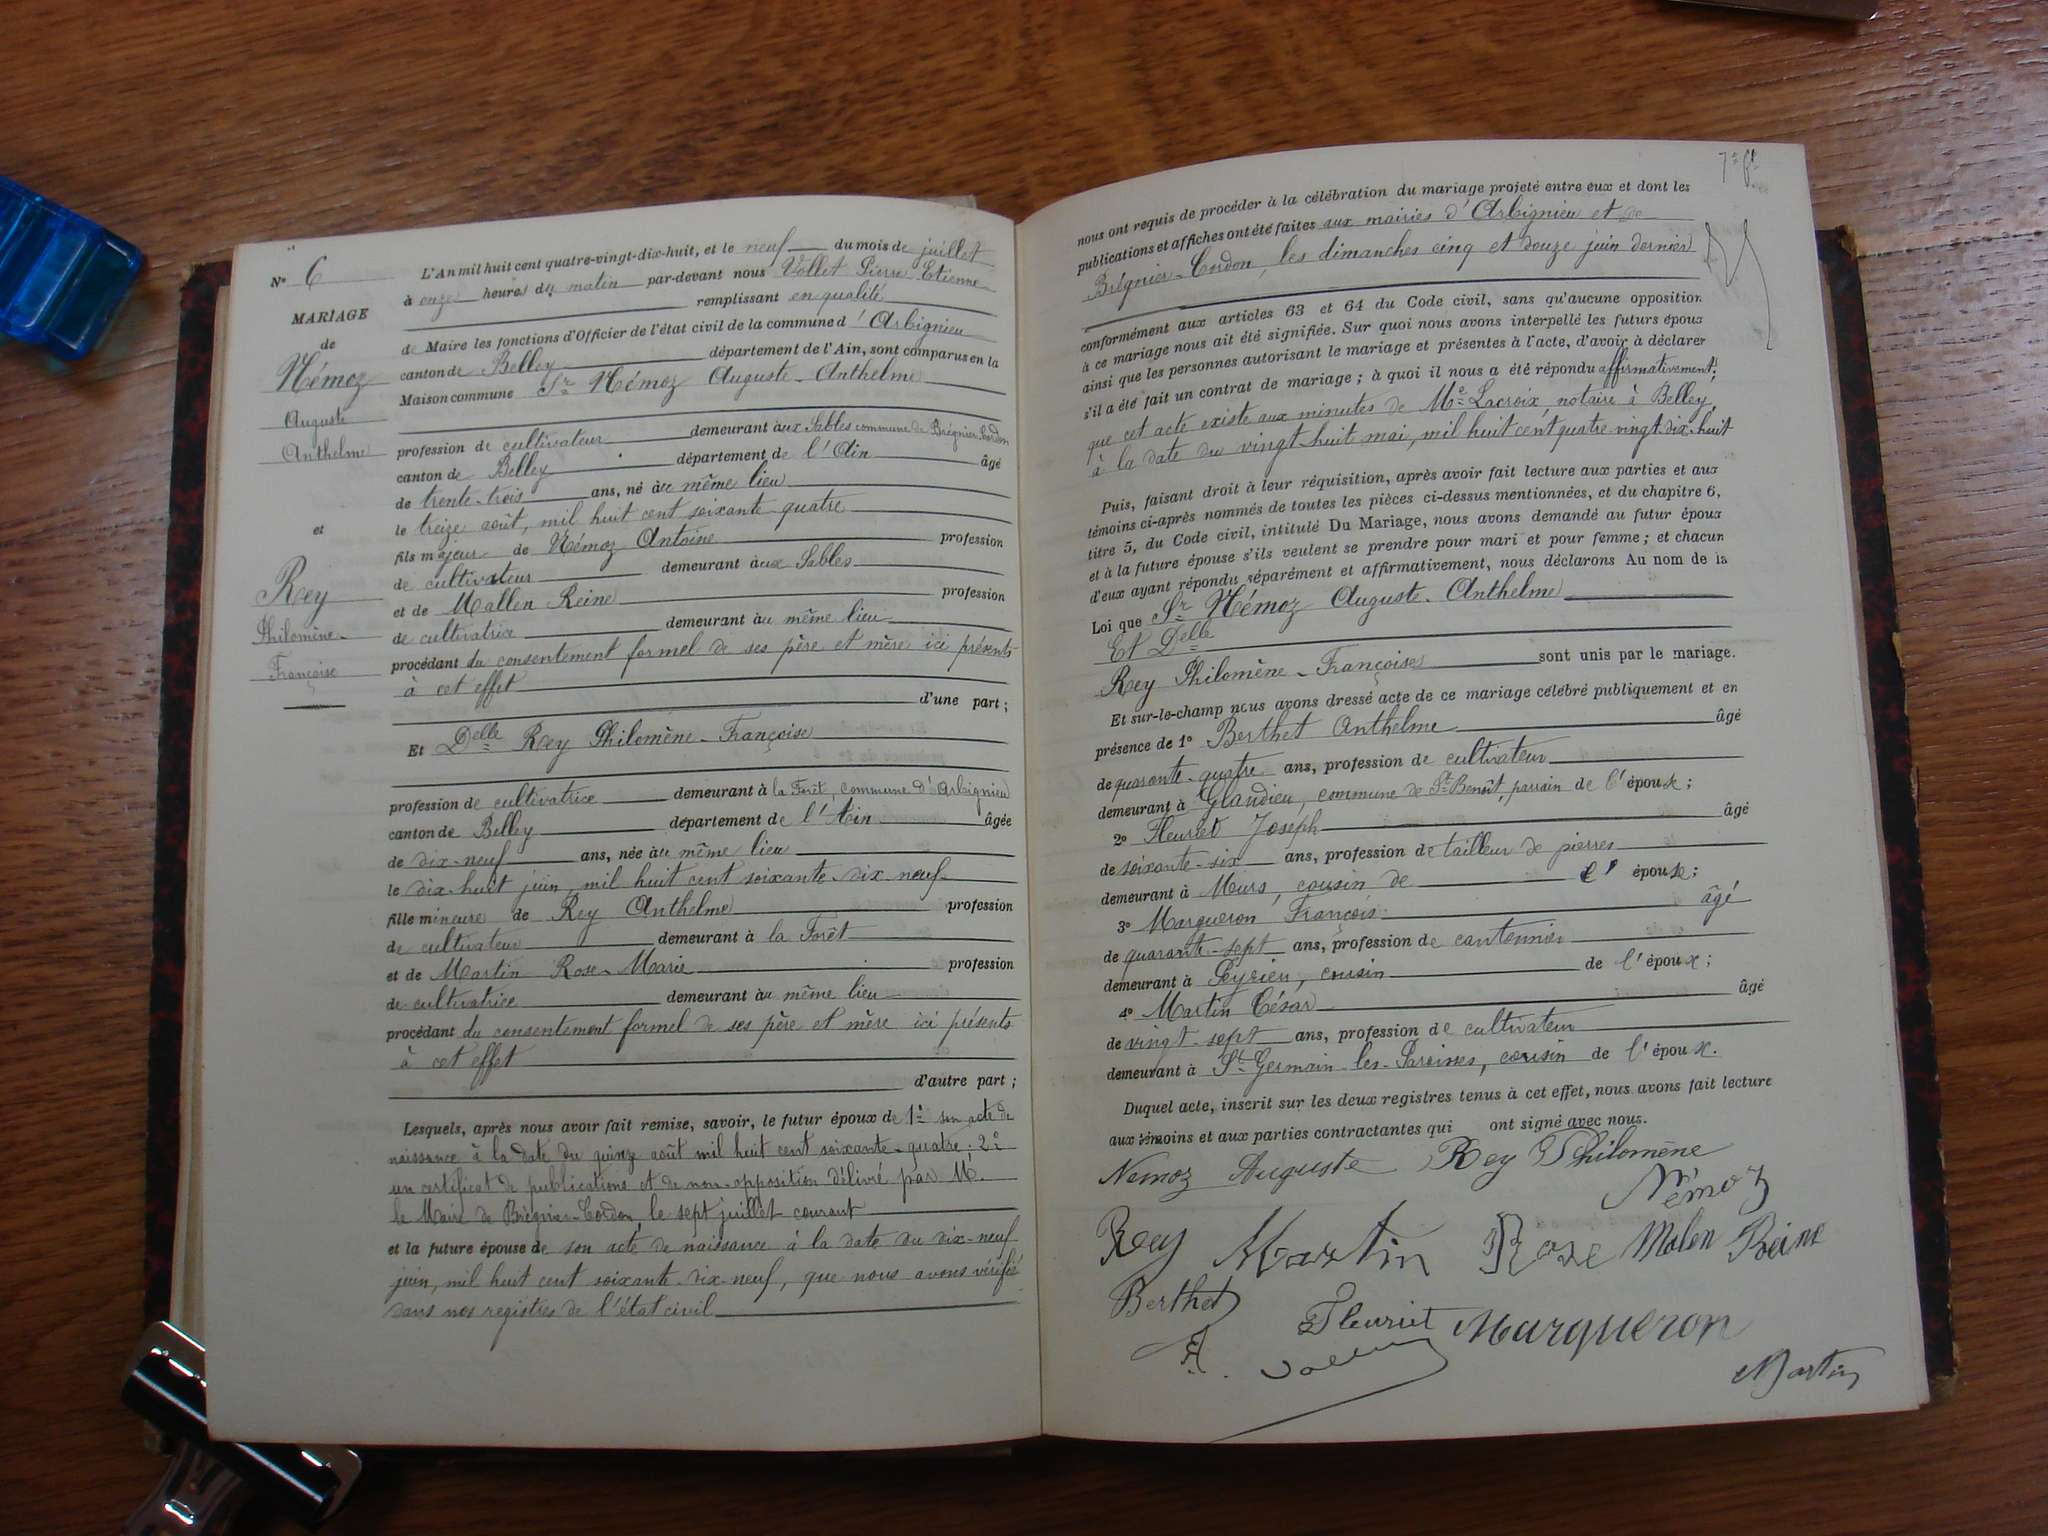 N° 6
MARIAGE
de
Némoz
Auguste
Anthelme
et
Rey
Philomène
Françoise
L'An mil huit cent quatre-vingt-dix-huit, et le neuf du mois de juillet
à onze heures du matin par-devant nous Vollet Pierre Etienne
remplissant en qualité
de Maire les fonctions d'Officier de l'état civil de la commune d'Arbignieu
canton de Belley département de l'Ain, sont comparus en la
Maison commune Sr Némoz Auguste-Anthelme
profession de cultivateur demeurant aux Sables commune de Brégnier-Cordon
canton de Belley département de l'Ain âgé
de trente-trois ans, né au même lieu
le treize août, mil huit cent soixante-quatre
fils majeur de Némoz Antoine profession
de cultivateur demeurant aux Sables
et de Mallen Reine profession
de cultivatrice demeurant au même lieu
procédant du consentement formel de ses père et mère ici présents
à cet effet
d'une part ;
Et Delle Rey Philomène-Françoise
profession de cultivatrice demeurant à la Forêt, commune d'Arbignieu
canton de Belley département de l'Ain âgée
de dix-neuf ans, née au même lieu
le dix-huit juin, mil huit cent soixante-dix-neuf
fille mineure de Rey Anthelme profession
de cultivateur demeurant à la Forêt
et de Martin Rose-Marie profession
de cultivatrice demeurant au même lieu
procédant du consentement formel de ses père et mère ici présents
à cet effet
d'autre part ;
Lesquels, après nous avoir fait remise, savoir, le futur époux de 1° son acte de
naissance à la date du quinze août mil huit cent soixante-quatre ; 2°
un certificat de publications et de non-opposition délivré par M.
le Maire de Brégnier-Cordon, le sept juillet courant
et la future épouse de son acte de naissance à la date du dix-neuf
juin, mil huit cent soixante-dix-neuf, que nous avons vérifié
dans nos registres de l'état civil
nous ont requis de procéder à la célébration du mariage projeté entre eux et dont les
publications et affiches ont été faites aux mairies d'Arbignieu et de
Brégnier-Cordon, les dimanches cinq et douze juin dernier
conformément aux articles 63 et 64 du Code civil, sans qu'aucune opposition
à ce mariage nous ait été signifiée. Sur quoi nous avons interpellé les futurs époux
ainsi que les personnes autorisant le mariage et présentes à l'acte, d'avoir à déclarer
s'il a été fait un contrat de mariage ; à quoi il nous a été répondu affirmativement ;
que cet acte existe aux minutes de Me Lacroix, notaire à Belley
à la date du vingt-huit mai, mil huit cent quatre-vingt-dix-huit
Puis, faisant droit à leur réquisition, après avoir fait lecture aux parties et aux
témoins ci-après nommés de toutes les pièces ci-dessus mentionnées, et du chapitre 6,
titre 5, du Code civil, intitulé Du Mariage, nous avons demandé au futur époux
et à la future épouse s'ils veulent se prendre pour mari et pour femme ; et chacun
d'eux ayant répondu séparément et affirmativement, nous déclarons Au nom de la
Loi que Sr Némoz Auguste-Anthelme
Et Delle
Rey Philomène-Françoise sont unis par le mariage.
Et sur-le-champ nous avons dressé acte de ce mariage célébré publiquement et en
présence de 1° Berthet Anthelme âgé
de quarante-quatre ans, profession de cultivateur
demeurant à Glandieu, commune de St Benoît, parrain de l'épouse ;
2° Fleuret Joseph âgé
de soixante-six ans, profession de tailleur de pierres
demeurant à Murs, cousin de l'épouse ;
3° Margueron François âgé
de quarante-sept ans, profession de cantonnier
demeurant à Peyrieu, cousin de l'époux ;
4° Martin César âgé
de vingt-sept ans, profession de cultivateur
demeurant à St Germain-les-Paroisses, cousin de l'époux.
Duquel acte, inscrit sur les deux registres tenus à cet effet, nous avons fait lecture
aux témoins et aux parties contractantes qui ont signé avec nous.
Nemoz Auguste Rey Philomène
Némoz
Rey Martin Rose Molen Reine
Berthet Fleuriet Margueron
Vollet
Martin